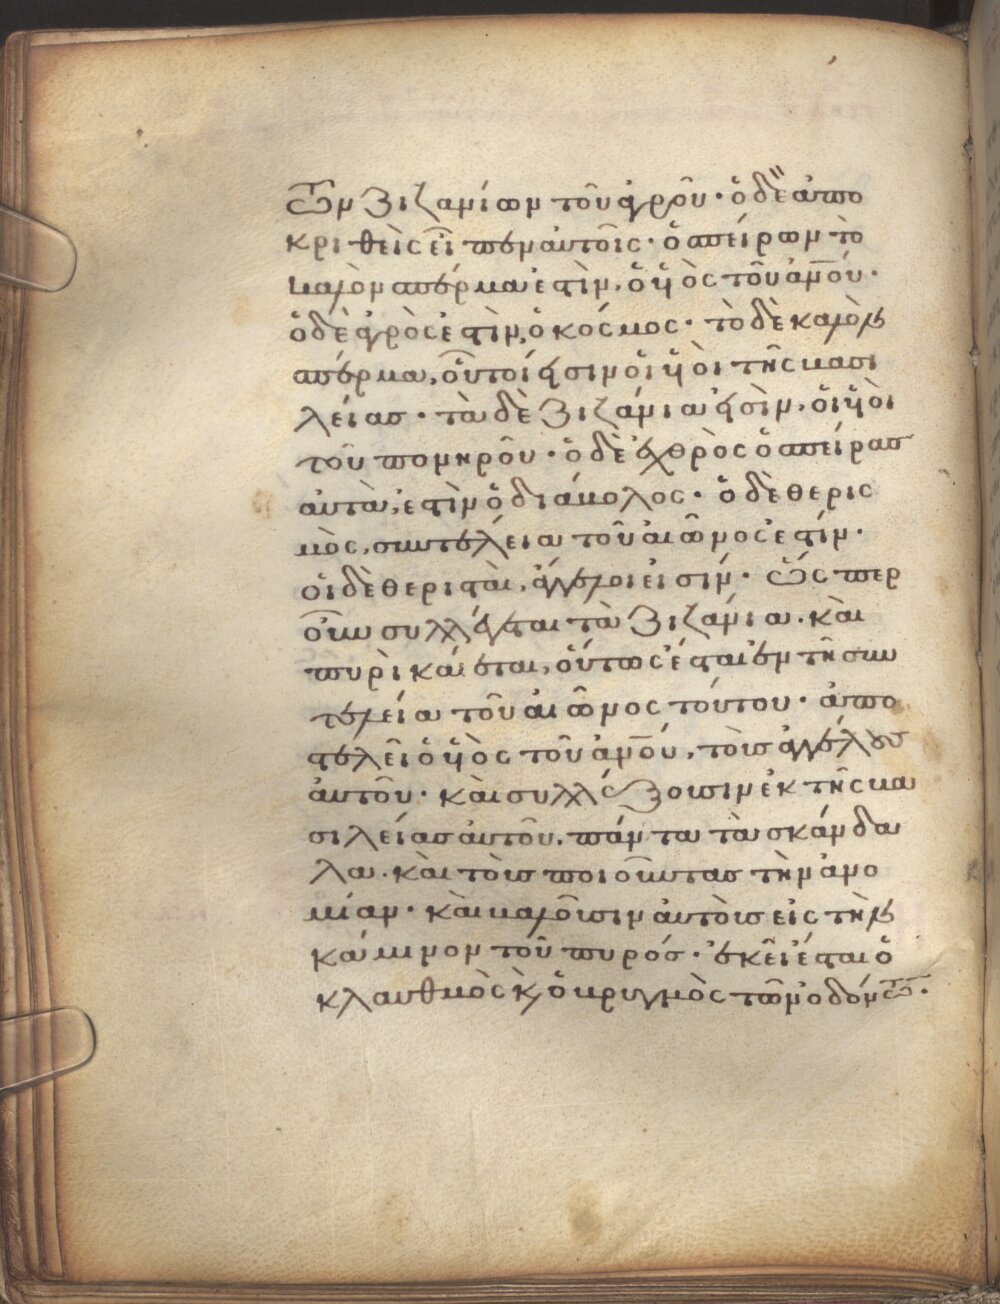 τῶν ζιζανίων τοῦ ἀγροῦ· ὁ δὲ ἀπο
κριθεὶς εἶπεν αὐτοῖς· ὁ σπείρων τὸ
καλὸν σπέρμα ἐστὶν, ὁ ὑιὸς τοῦ ἀν̅ο̅ύ·
ὁ δὲ ἀγρὸς ἐστὶν, ὁ κόσμος· τὸ δὲ καλὸν
σπέρμα, οὗτοί εἰσιν ὁι ὑιὸι τῆς βασι
λείας· τὰ δὲ ζιζάνια εἰσὶν, ὁι ὑιὸι
τοῦ πονηροῦ· ὁ δὲ ἐχθρὸς ὁ σπείρας
αὐτὰ, ἐστὶν ὁ διάβολος· ὁ δὲ θερισ
μὸς, συντέλεια τοῦ αἰῶνος ἐστίν·
ὁι δὲ θερισταὶ, ἄγγελοι εἰσίν· ὥσπερ
οὖν συλλέγεται τὰ ζιζάνια· καὶ
πυρὶ καίεται, οὕτως ἔσται ἐν τῆ συν
τελεία τοῦ αἰῶνος τούτου· ἀπο
στελεῖ ὁ ὑιὸς τοῦ ἀν̅ο̅ύ, τοὺς ἀγγέλους
ἀυτοῦ· καὶ συλλέξουσιν ἐκ τῆς βα
σιλείας ἀυτοῦ, πάντα τὰ σκάνδα
λα· καὶ τοὺς ποιοῦντας τὴν ἀνο
μίαν· καὶ βαλοῦσιν ἀυτοὺς εἰς τὴν
κάμινον τοῦ πυρός· ἐκεῖ ἔσται ὁ
κλαυθμὸς κ̀ ὁ βρυγμὸς τῶν ὀδόντων·